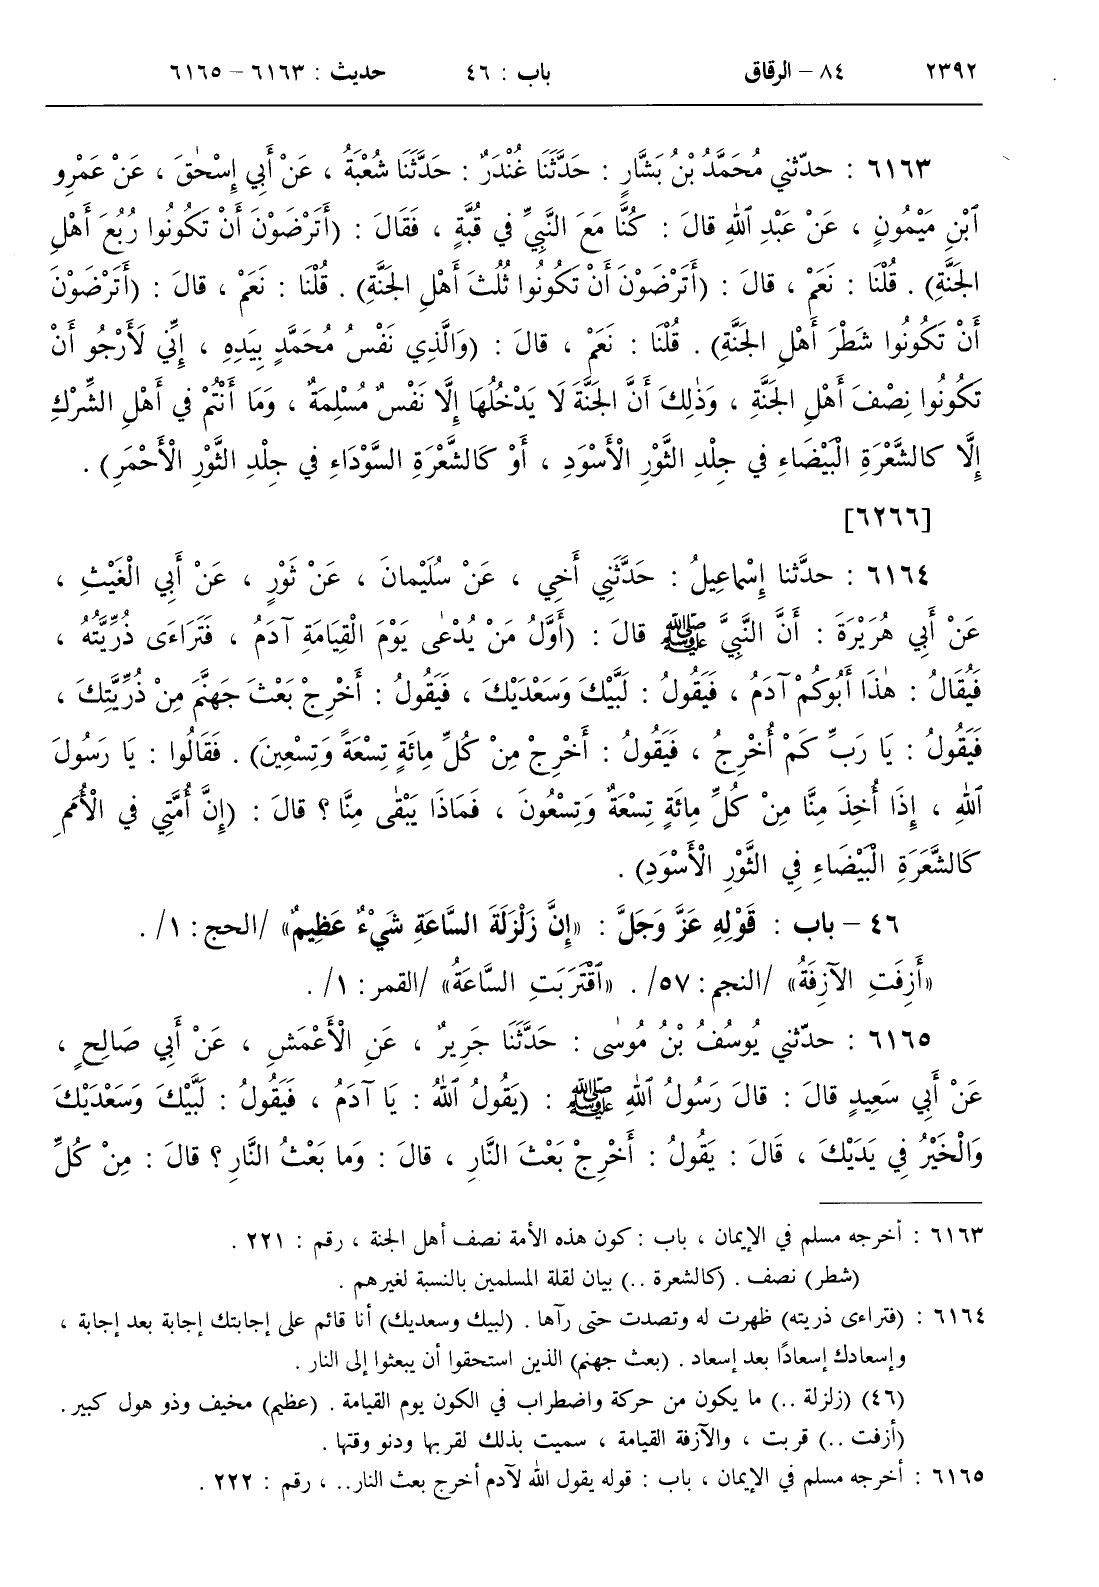 ٢٣٩٢ ٨٤ – الرقاق باب : ٤٦ حديث : ٦١٦٣ – ٦١٦٥
٦١٦٣ : حدّثني مُحَمَّدُ بْنُ بَشَّارٍ : حَدَّثَنَا غُنْدَرٌ : حَدَّثَنَا شُعْبَةُ ، عَنْ أَبِي إِسْحٰقَ ، عَنْ عَمْرِو
ٱبْنِ مَيْمُونٍ ، عَنْ عَبْدِ ٱللهِ قالَ : كُنَّا مَعَ النَّبِيِّ في قُبَّةٍ ، فَقَالَ : (أَتَرْضَوْنَ أَنْ تَكُونُوا رُبُعَ أَهْلِ
الجَنَّةِ) . قُلْنَا : نَعَمْ ، قالَ : (أَتَرْضَوْنَ أَنْ تَكُونُوا ثُلُثَ أَهْلِ الجَنَّةِ) . قُلْنَا : نَعَمْ ، قالَ : (أَتَرْضَوْنَ
أَنْ تَكُونُوا شَطْرَ أَهْلِ الجَنَّةِ) . قُلْنَا : نَعَمْ ، قالَ : (وَالَّذِي نَفْسُ مُحَمَّدٍ بِيَدِهِ ، إِنِّي لَأَرْجُو أَنْ
تَكُونُوا نِصْفَ أَهْلِ الجَنَّةِ ، وَذٰلِكَ أَنَّ الجَنَّةَ لَا يَدْخُلُهَا إِلَّا نَفْسٌ مُسْلِمَةٌ ، وَمَا أَنْتُمْ في أَهْلِ الشِّرْكِ
إِلَّا كالشَّعْرَةِ الْبَيْضَاءِ في جِلْدِ الثَّوْرِ الْأَسْوَدِ ، أَوْ كالشَّعْرَةِ السَّوْدَاءِ في جِلْدِ الثَّوْرِ الْأَحْمَرِ) .
[٦٢٦٦]
٦١٦٤ : حدّثنا إِسْماعِيلُ : حَدَّثَنِي أَخِي ، عَنْ سُلَيْمانَ ، عَنْ ثَوْرٍ ، عَنْ أَبِي الْغَيْثِ ،
عَنْ أَبِي هُرَيْرَةَ : أَنَّ النَّبِيَّ ﷺ قالَ : (أَوَّلُ مَنْ يُدْعٰى يَوْمَ الْقِيَامَةِ آدَمُ ، فَتَرَاءَى ذُرِّيَّتُهُ ،
فَيُقَالُ : هٰذَا أَبُوكُمْ آدَمُ ، فَيَقُولُ : لَبَّيْكَ وَسَعْدَيْكَ ، فَيَقُولُ : أَخْرِجْ بَعْثَ جَهَنَّمَ مِنْ ذُرِّيَّتِكَ ،
فَيَقُولُ : يَا رَبِّ كَمْ أُخْرِجُ ، فَيَقُولُ : أَخْرِجْ مِنْ كُلِّ مِائَةٍ تِسْعَةً وَتِسْعِينَ) . فَقَالُوا : يَا رَسُولَ
ٱللهِ ، إِذَا أُخِذَ مِنَّا مِنْ كُلِّ مِائَةٍ تِسْعَةٌ وَتِسْعُونَ ، فَمَاذَا يَبْقٰى مِنَّا ؟ قالَ : (إِنَّ أُمَّتِي في الْأُمَمِ
كَالشَّعَرَةِ الْبَيْضَاءِ في الثَّوْرِ الْأَسْوَدِ) .
٤٦ – باب : قَوْلِهِ عَزَّ وَجَلَّ : «إِنَّ زَلْزَلَةَ السَّاعَةِ شَيْءٌ عَظِيمٌ» /الحج: ١/ .
«أَزِفَتِ الآزِفَةُ» /النجم: ٥٧/ . «ٱقْتَرَبَتِ السَّاعَةُ» /القمر: ١/ .
٦١٦٥ : حدّثني يُوسُفُ بْنُ مُوسٰى : حَدَّثَنَا جَرِيرٌ ، عَنِ الْأَعْمَشِ ، عَنْ أَبِي صَالِحٍ ،
عَنْ أَبِي سَعِيدٍ قالَ : قالَ رَسُولُ ٱللهِ ﷺ : (يَقُولُ ٱللهُ : يَا آدَمُ ، فَيَقُولُ : لَبَّيْكَ وَسَعْدَيْكَ
وَالْخَيْرُ فِي يَدَيْكَ ، قَالَ : يَقُولُ : أَخْرِجْ بَعْثَ النَّارِ ، قالَ : وَما بَعْثُ النَّارِ ؟ قالَ : مِنْ كُلِّ
٦١٦٣ : أخرجه مسلم في الإيمان ، باب : كون هذه الأمة نصف أهل الجنة ، رقم : ٢٢١ .
(شطر) نصف . (كالشعرة ..) بيان لقلة المسلمين بالنسبة لغيرهم .
٦١٦٤ : (فتراءى ذريته) ظهرت له وتصدت حتى رآها . (لبيك وسعديك) أنا قائم على إجابتك إجابة بعد إجابة ،
وإسعادك إسعادًا بعد إسعاد . (بعث جهنم) الذين استحقوا أن يبعثوا إلى النار .
(٤٦) (زلزلة ..) ما يكون من حركة واضطراب في الكون يوم القيامة . (عظيم) مخيف وذو هول كبير .
(أزفت ..) قربت ، والآزفة القيامة ، سميت بذلك لقربها ودنو وقتها .
٦١٦٥ : أخرجه مسلم في الإيمان ، باب : قوله يقول الله لآدم أخرج بعث النار.. ، رقم : ٢٢٢ .